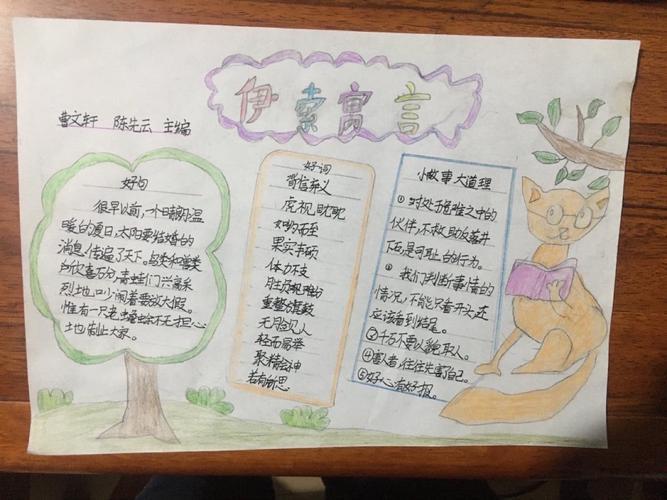 伊索寓言
曹文轩 陈先云 主编
好句
很早以前,一个晴朗温
暖的夏日,太阳要结婚的
消息传遍了天下。鸟类和兽类
欣喜 青蛙们兴高采
烈地叫闹着要放大假。
惟有一只老蟾蜍 担心
地制止大家。
好词
背信弃义
虎视眈眈
果实丰硕
体力不支
重整旗鼓
无脸见人
轻而易举
聚精会神
若有所思
小故事大道理
①对处于危难之中的
伙伴,不救助反落井
下石是可耻的行为。
②我们判断事情的
情况,不能只看开头还
应该看到结尾。
③千万不要以貌取人。
④害人者,往往先害了自己。
⑤好心有好报。